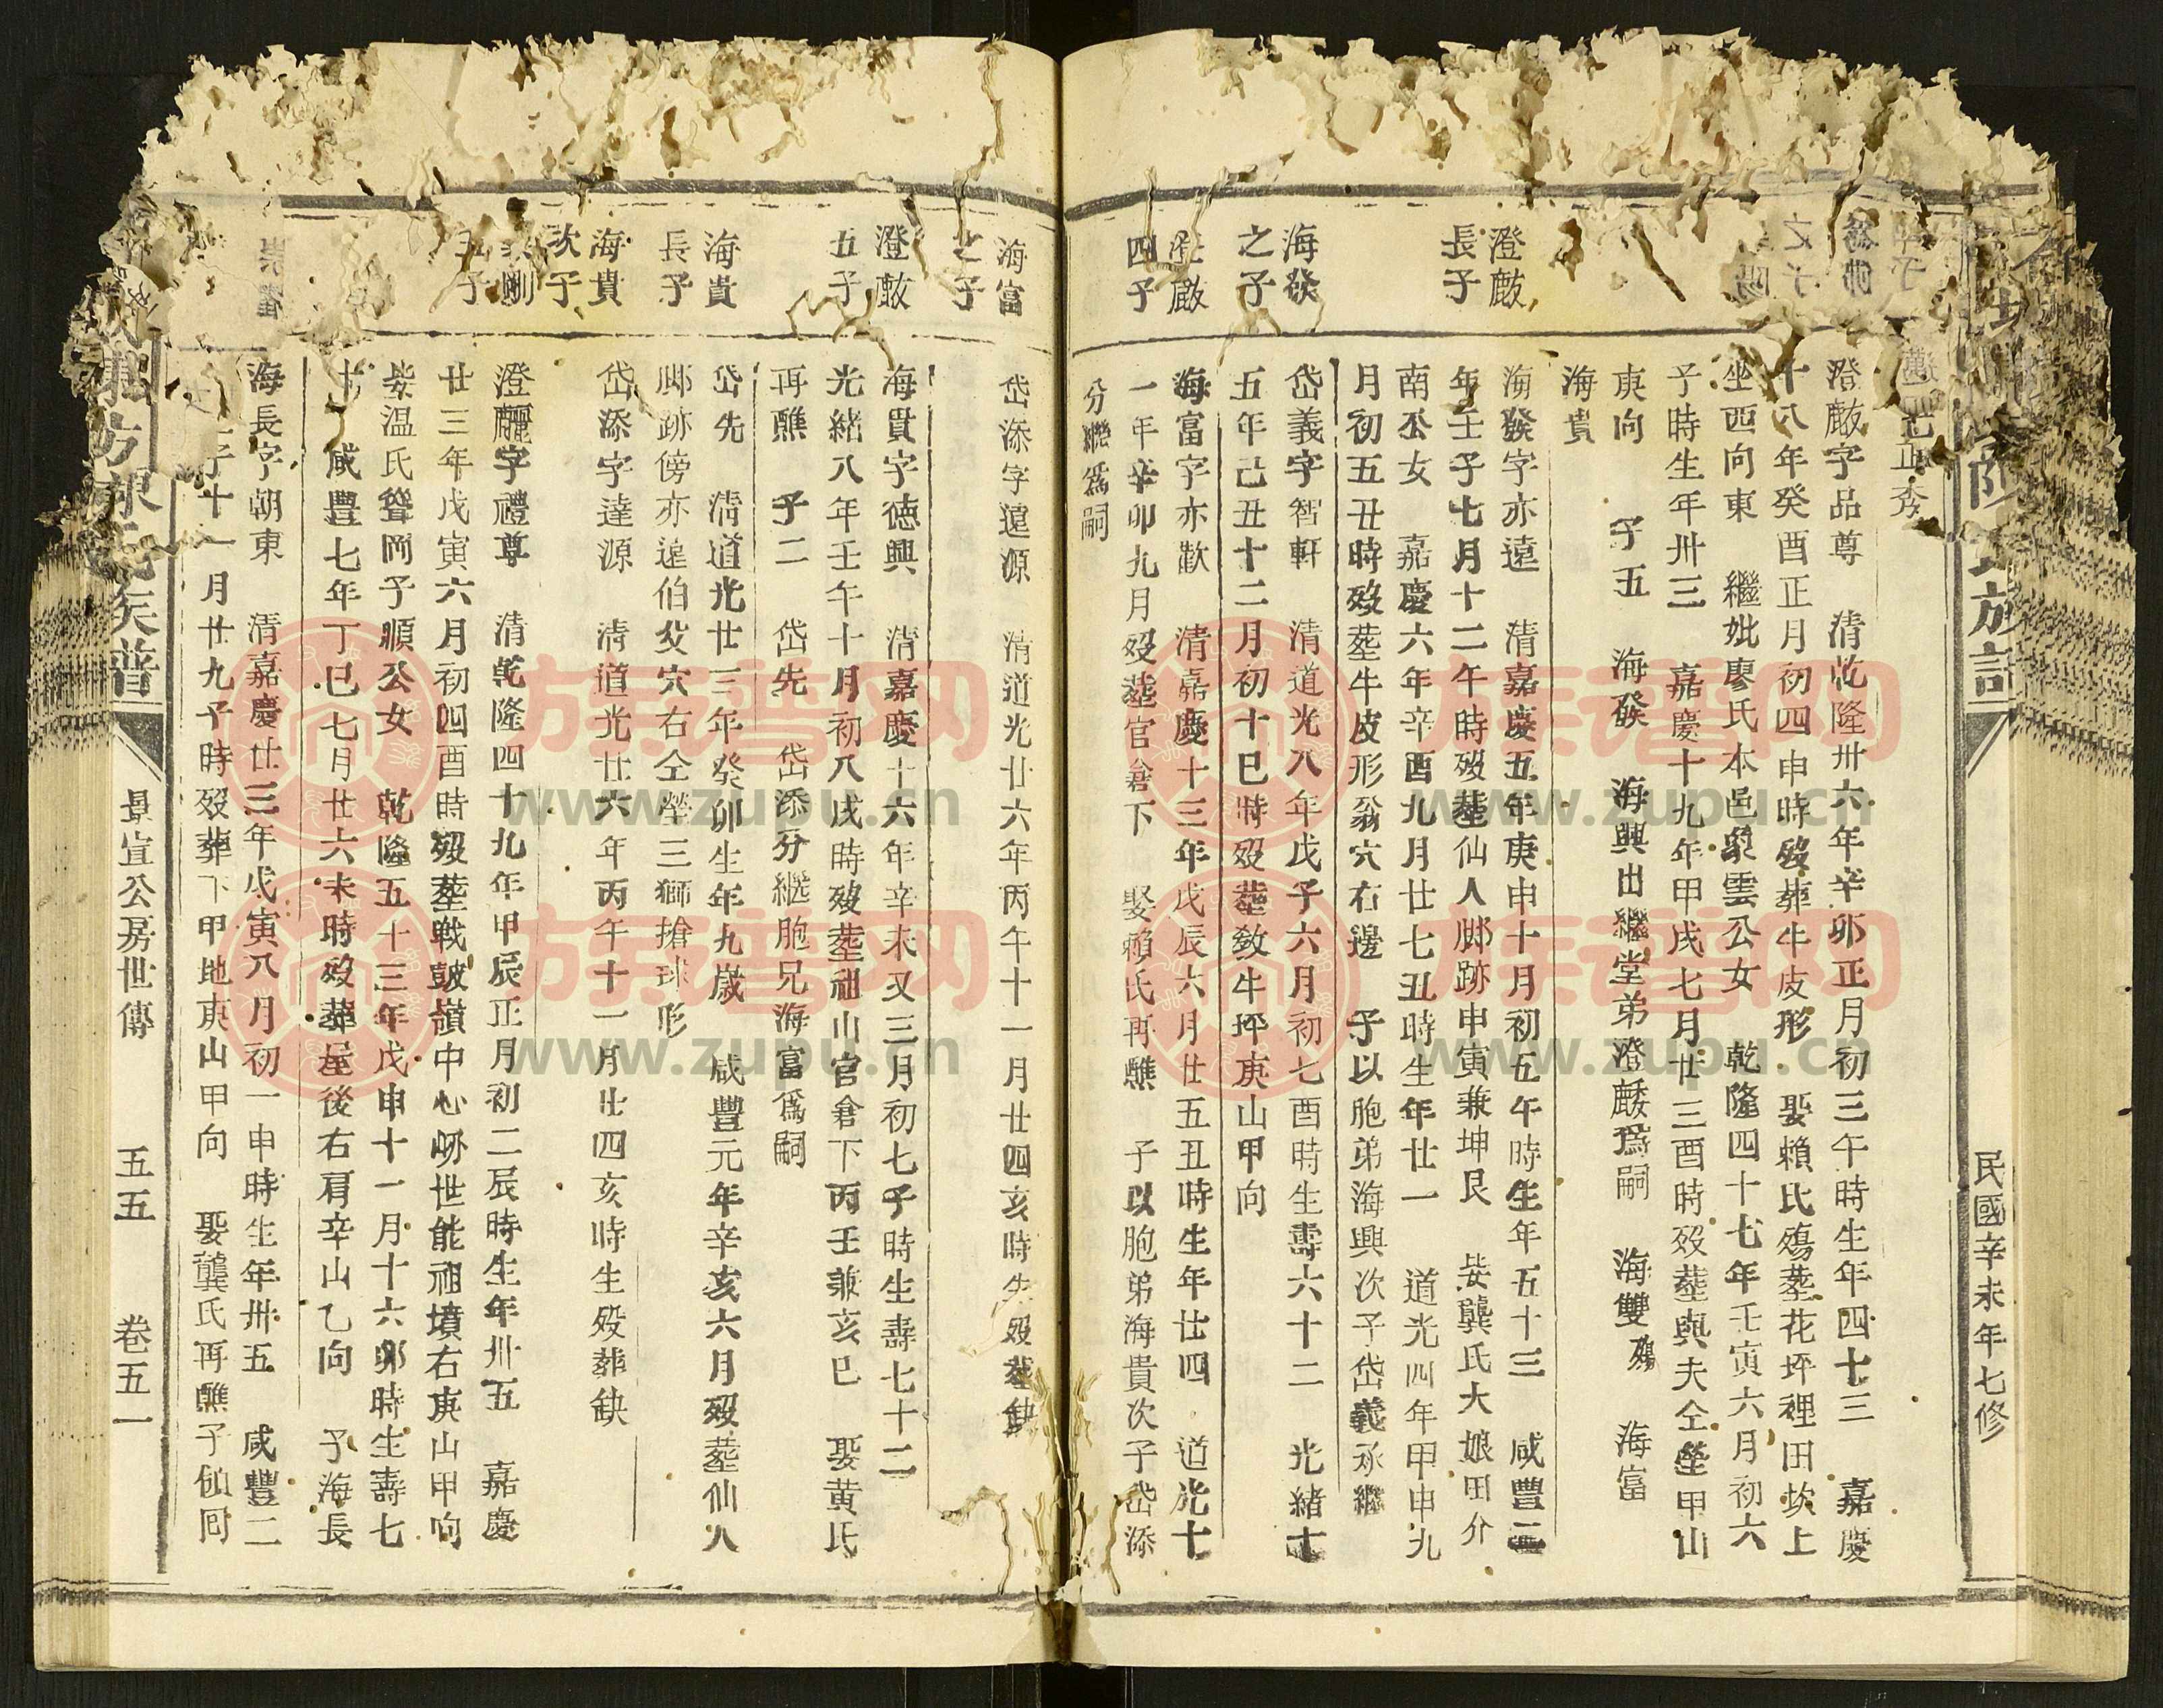 民國辛未年七修
正秀
澄廒字品尊　清乾隆卅六年辛卯正月初三午時生年四七三　嘉慶
十八年癸酉正月初四申時歿葬牛皮形　娶賴氏殤塟花坪裡田坎上
坐西向東　繼妣廖氏本邑爵雲公女　乾隆四十七年壬寅六月初六
子時生年卅三　嘉慶十九年甲戌七月廿三酉時歿塟與夫仝塋甲山
庚向　子五　海發　海興出繼堂弟澄麎爲嗣　海雙殤　海富
海貴
澄廒
長子
海發字亦遠　清嘉慶五年庚申十月初五午時生年五十三　咸豐二
年壬子七月十二午時歿塟仙人脚跡申寅兼坤艮　娶龔氏大娘田介
南公女　嘉慶六年辛酉九月廿七丑時生年廿一　道光四年甲申九
月初五丑時歿塟牛皮形翁穴右邊　子以胞弟海興次子岱義承繼
海發
之子
岱義字智軒　清道光八年戊子六月初七酉時生壽六十二　光緒十
五年己丑十二月初十巳時歿塟敘牛坪庚山甲向
廒
四子
海富字亦歉　清嘉慶十三年戊辰六月廿五丑時生年廿四　道光十
一年辛卯九月歿塟官倉下　娶賴氏再醮　子以胞弟海貴次子岱添
分繼爲嗣
海富
之子
岱添字遠源　清道光廿六年丙午十一月廿四亥時生歿塟缺
澄廒
五子
海貴字德興　清嘉慶十六年辛未又三月初七子時生壽七十二
光緒八年壬午十月初八戌時歿塟祖山官倉下丙壬兼亥巳　娶黄氏
再醮　子二　岱先　岱添分繼胞兄海富爲嗣
海貴
長子
岱先　清道光廿三年癸卯生年九歲　咸豐元年辛亥六月歿塟仙人
脚跡傍亦遠伯父穴右仝塋三獅搶球形
海貴
次子
岱添字達源　清道光廿六年丙午十一月廿四亥時生歿葬缺
剛
五子
澄字禮尊　清乾隆四十九年甲辰正月初二辰時生年卅五　嘉慶
廿三年戊寅六月初四酉時歿塟戰皷嶺中心崊世能祖墳右庚山甲向
娶温氏聳岡子順公女　乾隆五十三年戊申十一月十六卯時生壽七
十　咸豐七年丁巳七月廿六未時歿葬屋後右肩辛山乙向　子海長
海長字朝東　清嘉慶廿三年戊寅八月初一申時生年卅五　咸豐二
子十一月廿九子時歿葬下甲地庚山甲向　娶龔氏再醮子
族譜
景宣公房世傳
五五
卷五一
族譜网
www.zupu.cn
族譜网
www.zupu.cn
族譜网
www.zupu.cn
族譜网
www.zupu.cn